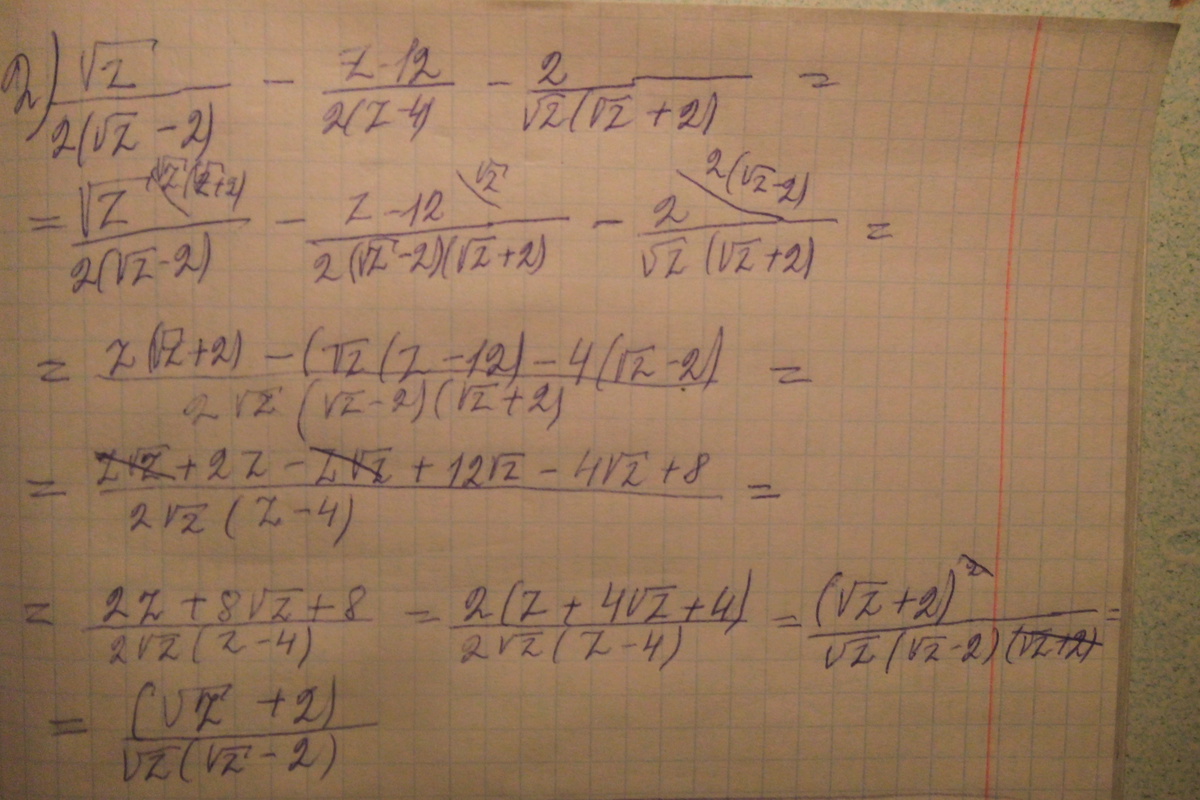 2) √z / 2(√z - 2) - z-12 / 2(z-4) - 2 / √z(√z + 2) =
= √z \√z(√z+2) / 2(√z-2) - z-12 \√z / 2(√z-2)(√z+2) - 2 \2(√z-2) / √z(√z+2) =
= z(√z+2) - (√z(z-12) - 4(√z-2) / 2√z(√z-2)(√z+2) =
= z√z + 2z - z√z + 12√z - 4√z + 8 / 2√z(z-4) =
= 2z + 8√z + 8 / 2√z(z-4) = 2(z + 4√z + 4) / 2√z(z-4) = (√z+2)² / √z(√z-2)(√z+2) =
= (√z + 2) / √z(√z-2)